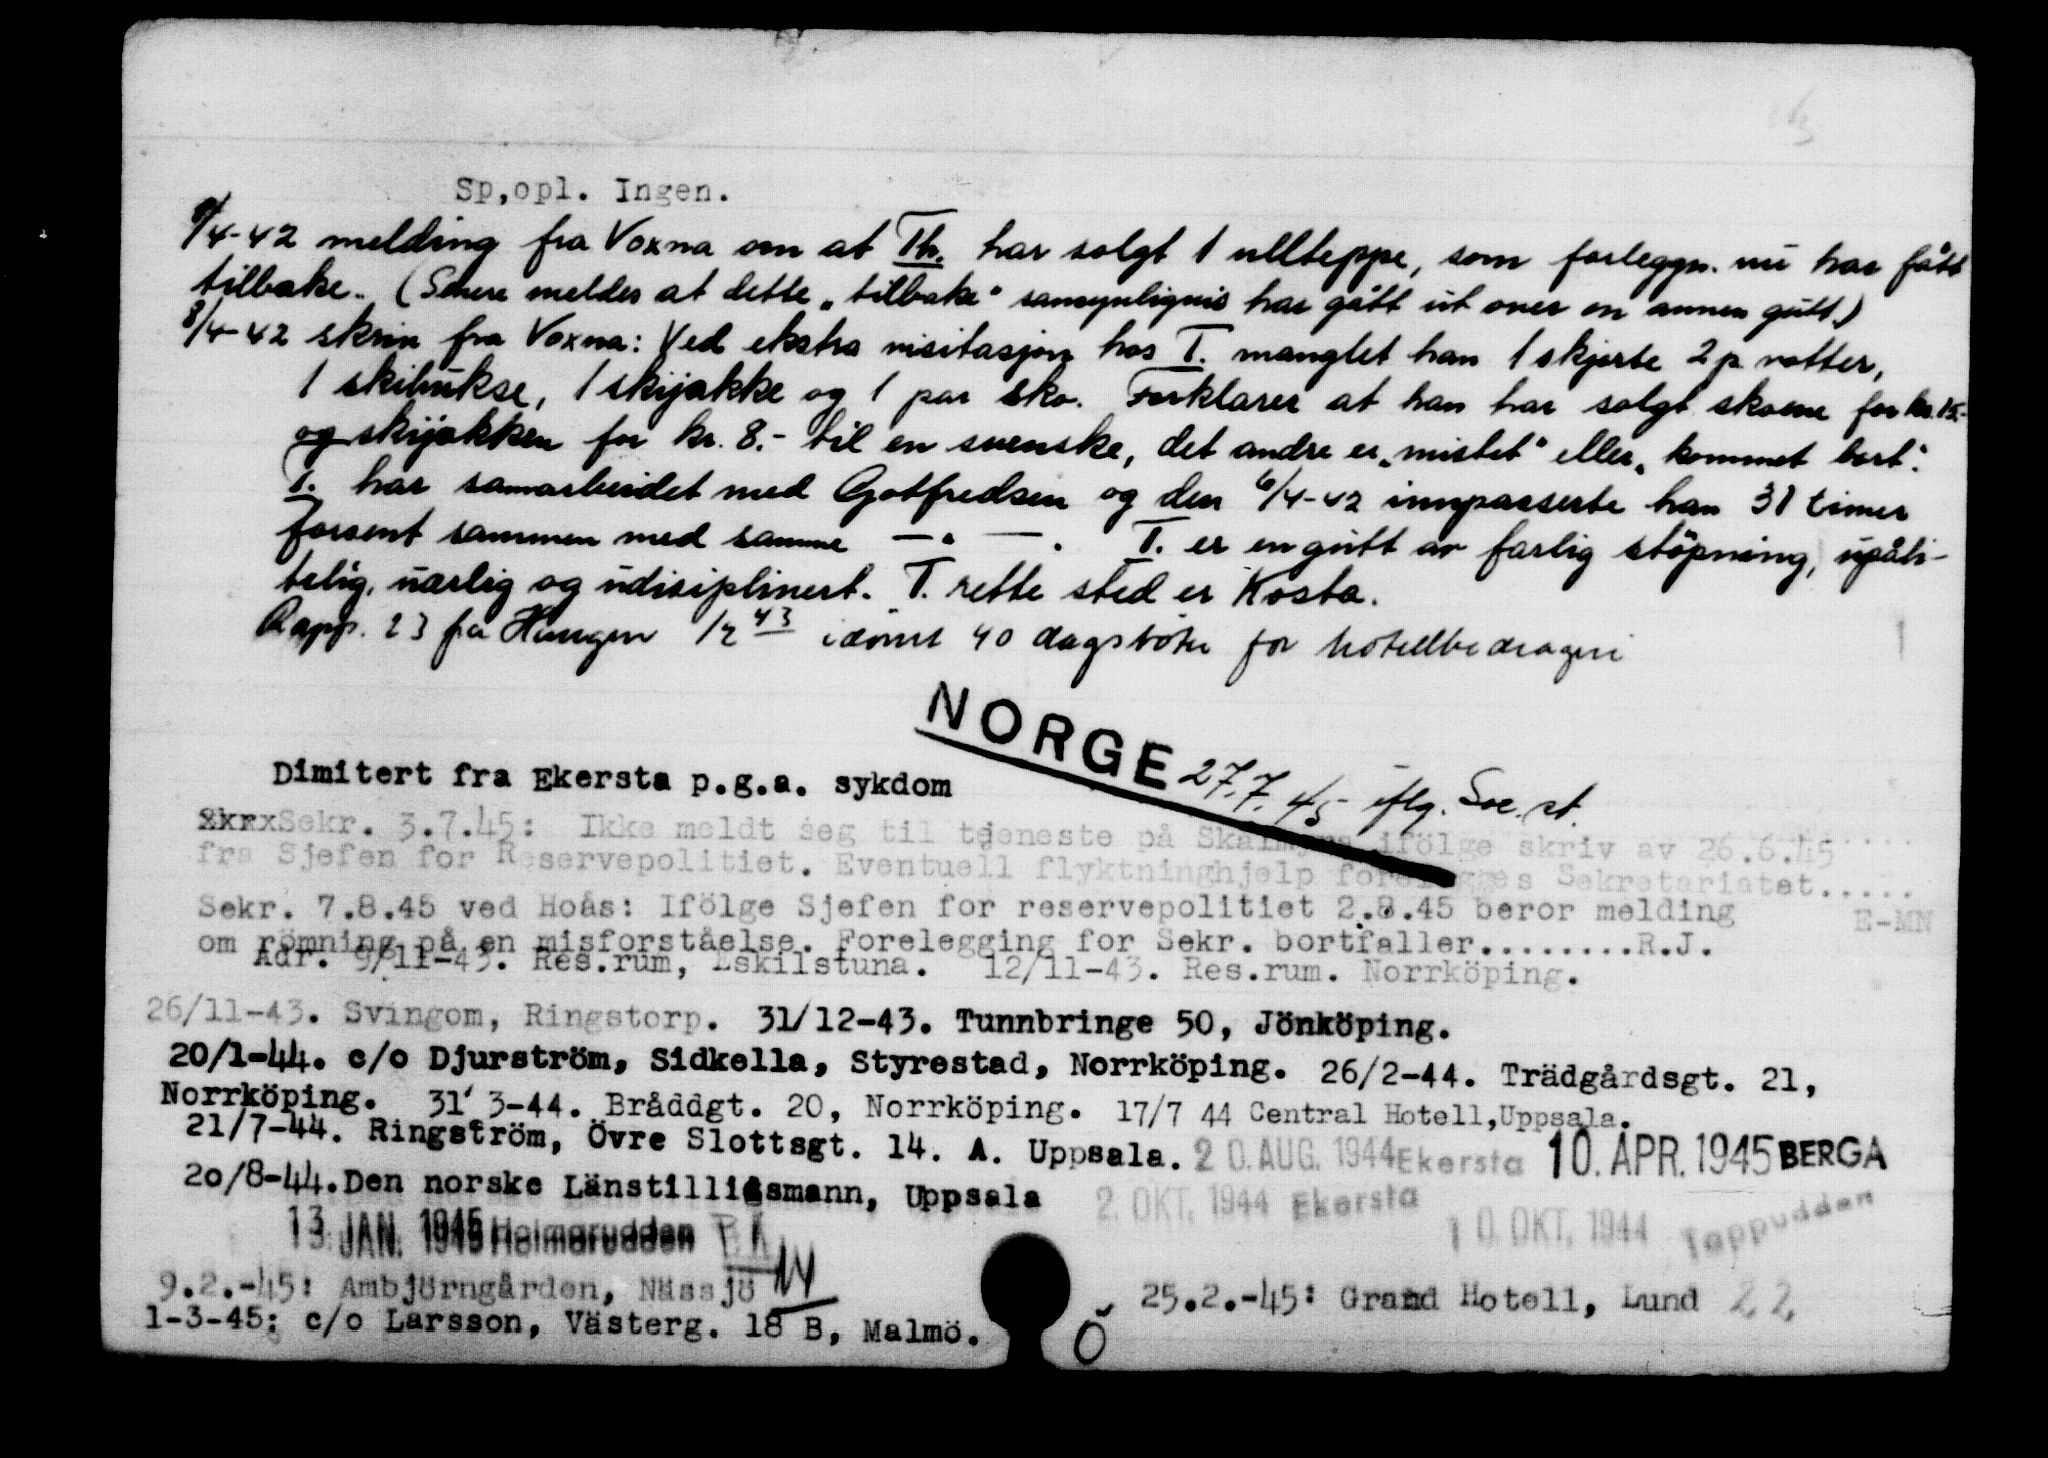 Sp,opl. Ingen.
9/4-42 melding fra Voxna om at Th. har solgt 1 ullteppe, som forleggn. nu har fått
tilbake.. (Senere meldes at dette „tilbake" sansynligvis har gått ut over en annen gutt.)
8/4-42 skriv fra Voxna: Ved ekstra visitasjon hos T. manglet han 1 skjorte 2 p. votter,
1 skibukse, 1 skijakke og 1 par sko. Forklarer at han har solgt skoene for kr. 15.-
og skijakken for kr. 8.- til en svenske, det andre er „mistet" eller „kommet bort".
T. har samarbeidet med Gotfredsen og den 6/4-42 innpasserte han 31 timer
forsent sammen med samme —"— . T. er en gutt av farlig støpning, upåli-
telig, uærlig og udisiplinert. T. rette sted er Kosta.
Rapp. 23 fra Haugen 1/2 43 idømt 40 dagsbøter for hotellbedrageri
NORGE 27.7.45 iflg. Soc. st.
Dimitert fra Ekersta p.g.a. sykdom
Sekr. 3.7.45: Ikke meldt seg til tjeneste på ifölge skriv av 26.6.45
fra Sjefen for Reservepolitiet. Eventuell flyktninghjelp forelegges Sekretariatet.....
E-MN
Sekr. 7.8.45 ved Hoås: Ifölge Sjefen for reservepolitiet 2.8.45 beror melding
om römning på en misforståelse. Forelegging for Sekr. bortfaller........R.J.
Adr. 9/11-43. Res.rum, Eskilstuna. 12/11-43. Res.rum. Norrköping.
26/11-43. Svingom, Ringstorp. 31/12-43. Tunnbringe 50, Jönköping.
20/1-44. c/o Djurström, Sidkella, Styrestad, Norrköping. 26/2-44. Trädgårdsgt. 21,
Norrköping. 31' 3-44. Bråddgt. 20, Norrköping. 17/7 44 Central Hotell,Uppsala.
21/7-44. Ringström, Övre Slottsgt. 14. A. Uppsala. 20. AUG. 1944 Ekersta 10. APR. 1945 BERGA
20/8-44. Den norske Länstillidsmann, Uppsala 2. OKT. 1944 Ekersta 10. OKT. 1944 Tappudden
13. JAN. 1945 Holmsrudden
9.2.-45: Ambjörngården, Nässjö 25.2.-45: Grand Hotell, Lund 22.
1-3-45: c/o Larsson, Västerg. 18 B, Malmö. Ö